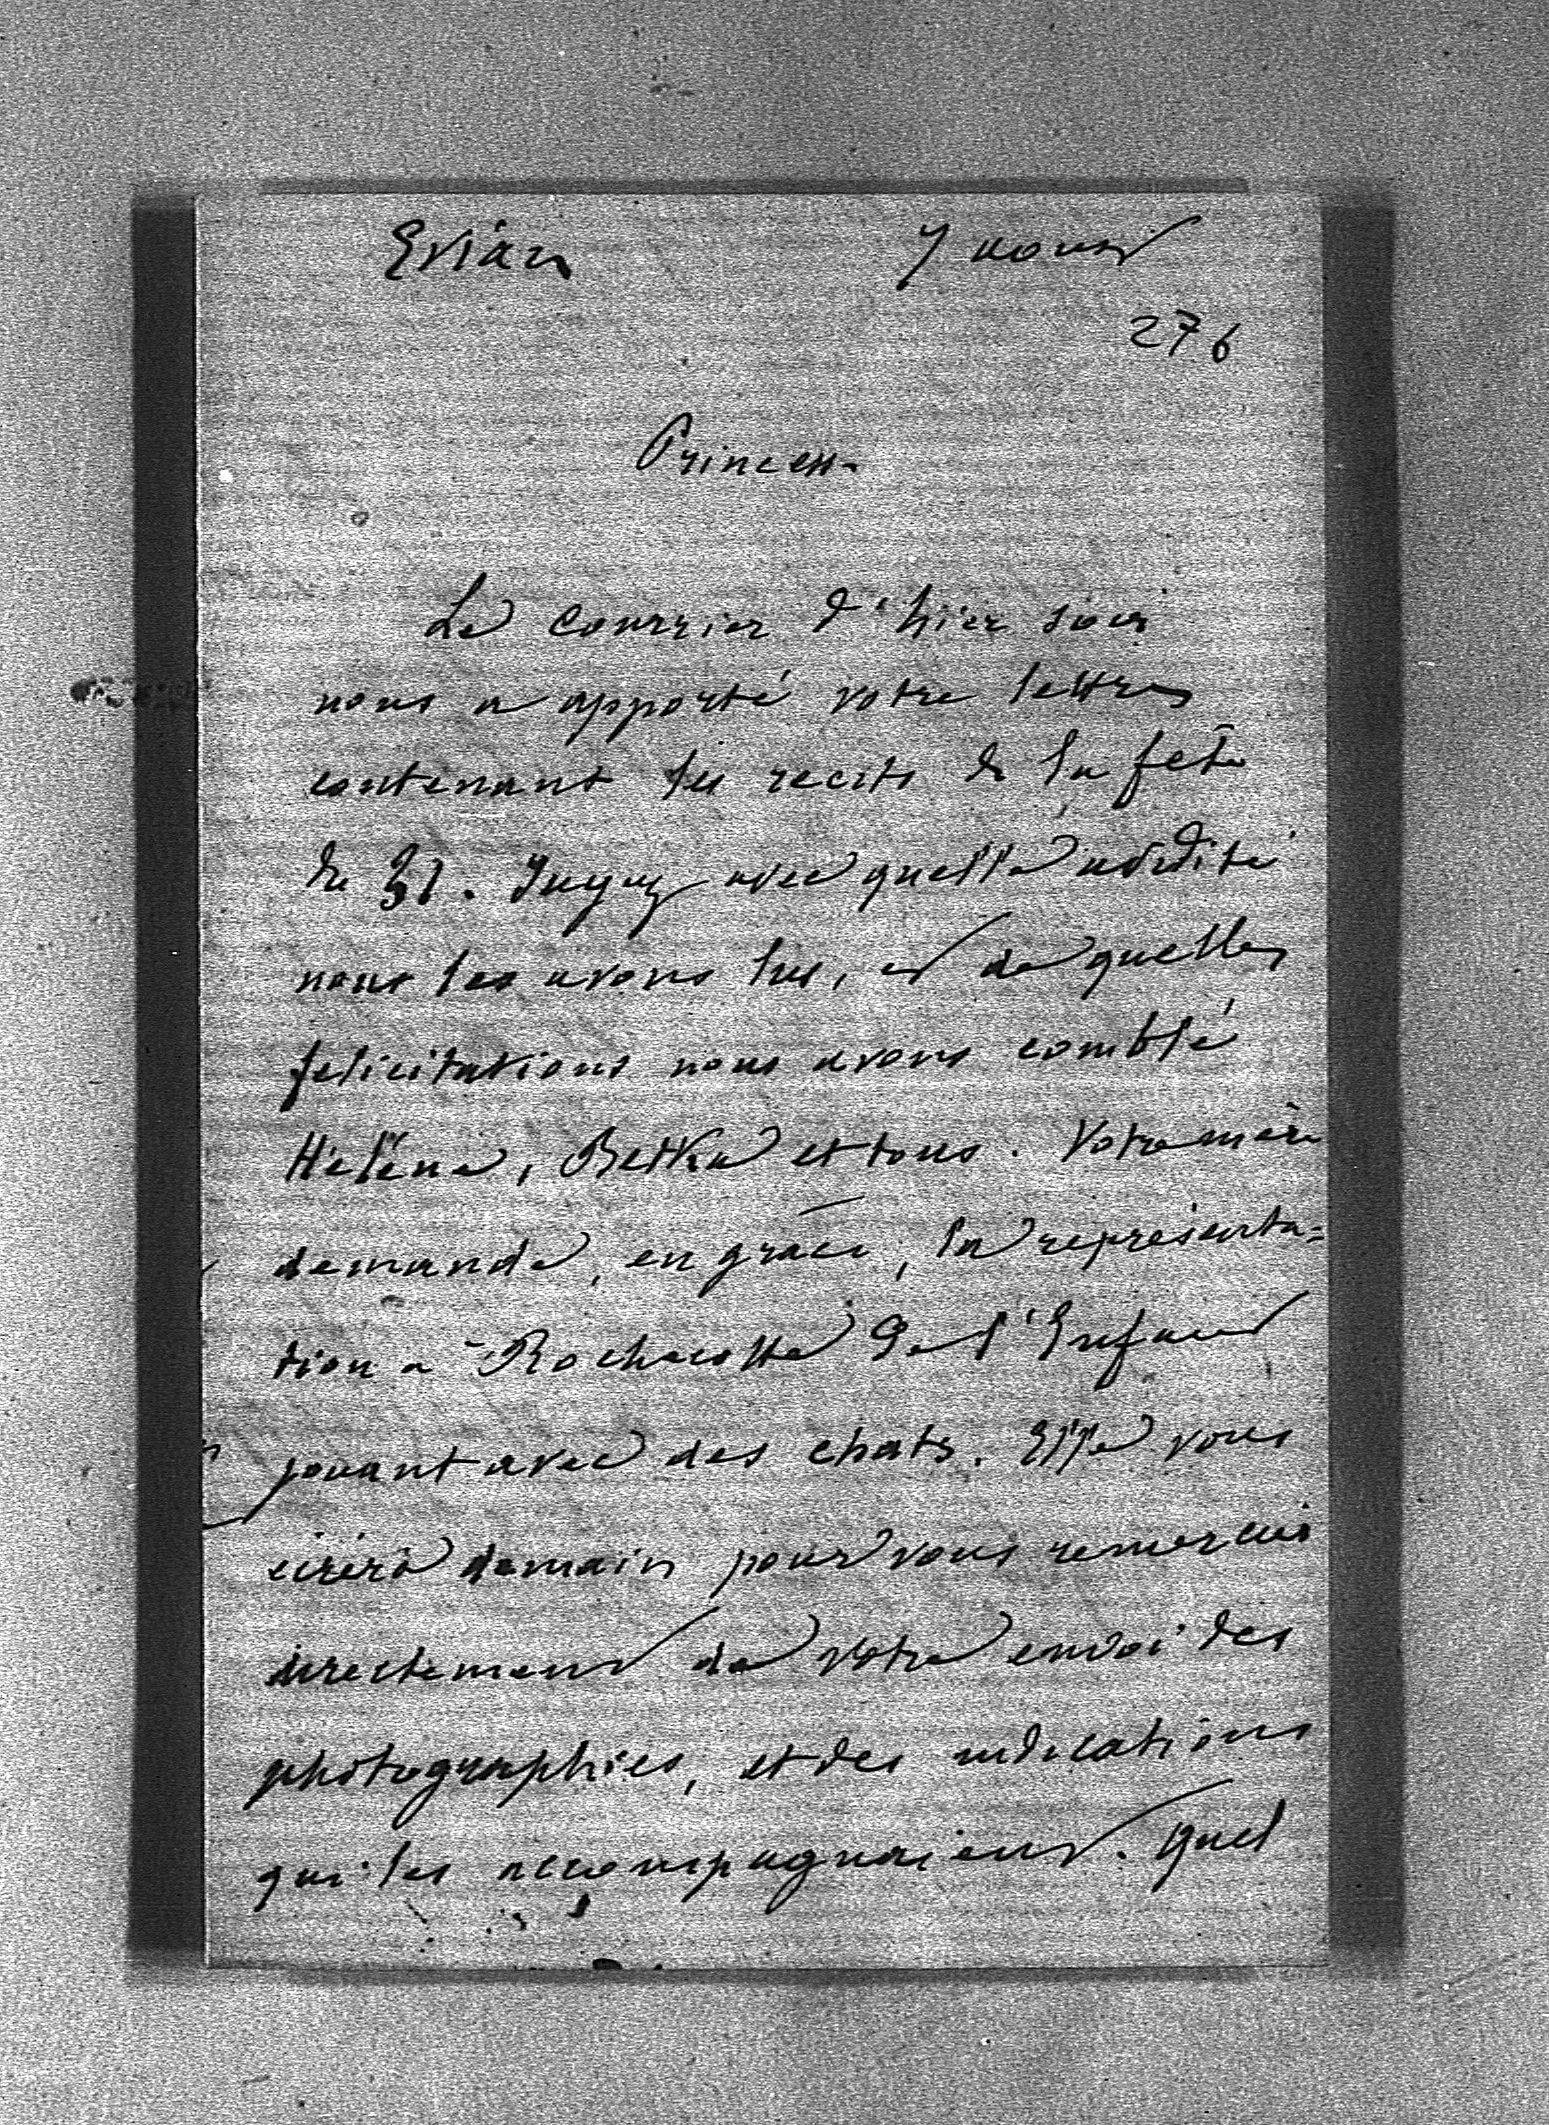 Evian 7 aout
276
Princesse
Le Courrier d'hier soir
nous a apporté votre lettre
contenant les recits de la fête
du 31. Jugez avec quelle avidité
nous les avons lus, et de quelles
felicitations nous avons comblé
Hélène, Betka et tous. Votre mère
demande, en grâce, la représenta=
tion a Rochecotte de l'Enfant
jouant avec des chats. Elle vous
écrira demain pour vous remercier
directement de votre envoi des
photographies, et des indications
qui les accompagnaient. Quel